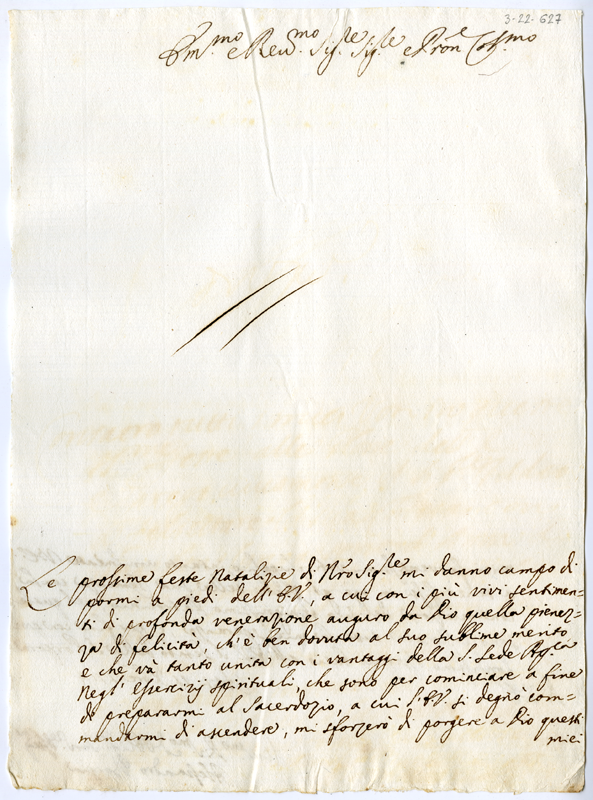 3-22-627
Em.mo e Rev.mo Sig.re Sig.re e Pron.e Col.mo
Le prossime feste Natalizie di Nro Sig.re mi danno campo di
pormi a piedi dell' E.V., a cui con i più vivi sentimen-
ti di profonda venerazione auguro da Dio quella pienez-
za di felicità, ch'è ben dovuta al suo sublime merito
e che và tanto unita con i vantaggi della S. Sede Ap.ca
Negl' essercizij spirituali, che sono per cominciare a fine
di prepararmi al Sacerdozio, a cui l'E.V. si degnò com-
mandarmi di ascendere, mi sforzerò di porgere a Dio questi
miei